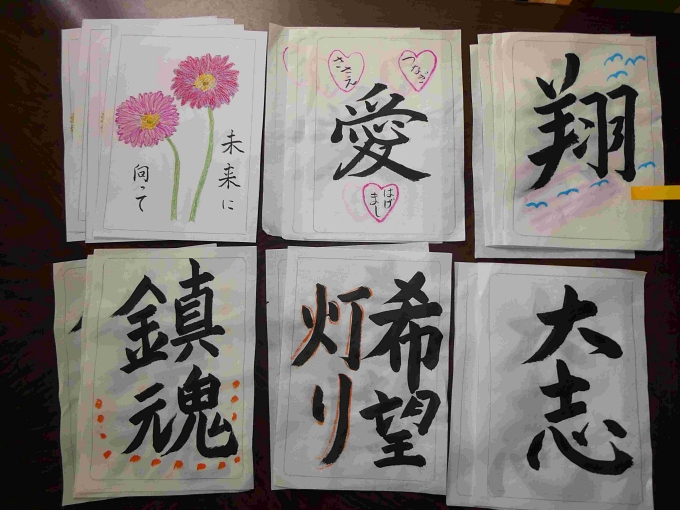 未来に
向って
ささえ
愛
はげ
まし
翔
鎮
魂
希望
灯り
大志